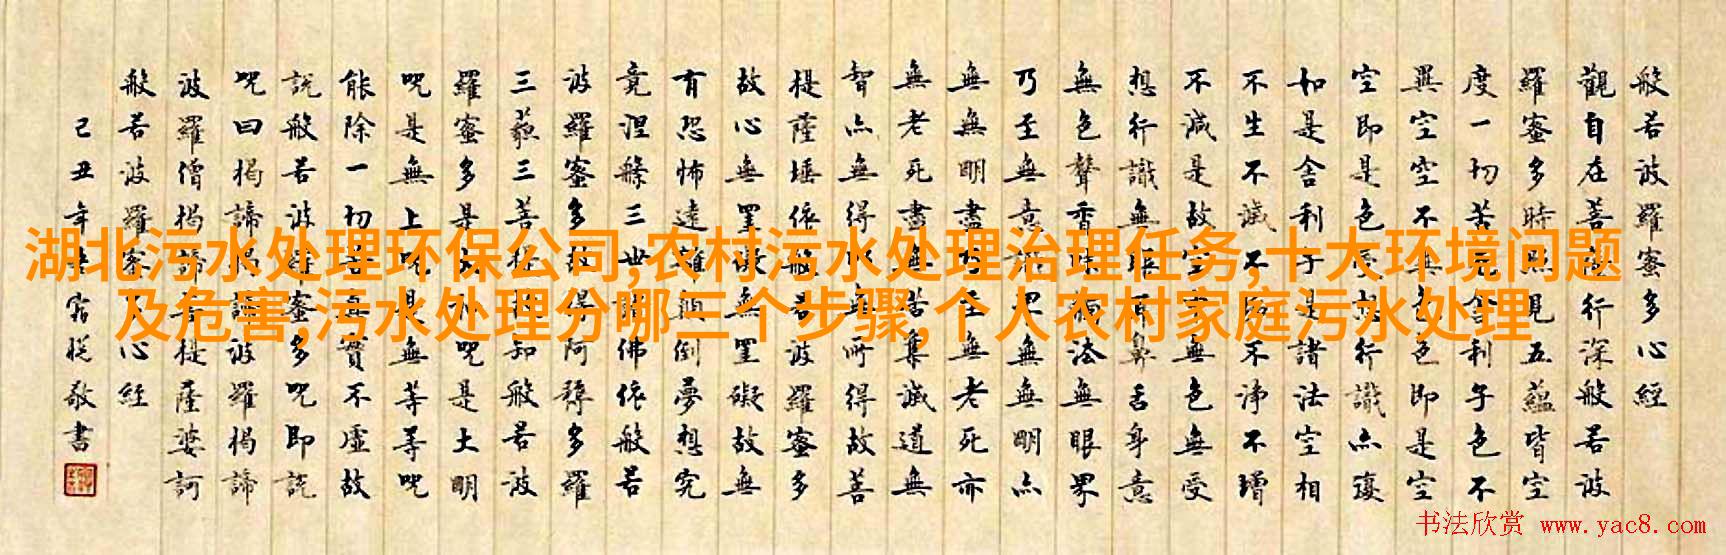 湖北污水处理环保公司,农村污水处理治理任务,十大环境问题
及危害,污水处理分哪三个步骤,个人农村家庭污水处理
般若波羅蜜多心經
觀自在菩薩行深般若波
羅蜜多時照見五蘊皆空
度一切苦厄舍利子色不
異空空不異色色即是空
空即是色受想行識亦復
如是舍利子是諸法空相
不生不滅不垢不淨不增
不減是故空中無色無受
想行識無眼耳鼻舌身意
無色聲香味觸法無眼界
乃至無意識界無無明亦
無無明盡乃至無老死亦
無老死盡無苦集滅道無
智亦無得以無所得故菩
提薩埵依般若波羅蜜多
故心無罣礙無罣礙故無
有恐怖遠離顛倒夢想究
竟涅槃三世諸佛依般若
波羅蜜多故得阿耨多羅
三藐三菩提故知般若波
羅蜜多是大神呪是大明
呪是無上呪是無等等呪
能除一切苦真實不虛故
說般若波羅蜜多呪即說
呪曰揭諦揭諦波羅揭諦
波羅僧揭諦菩提薩婆訶
般若波羅蜜多心經
己丑年敬書
书法欣赏 www.yac8.com